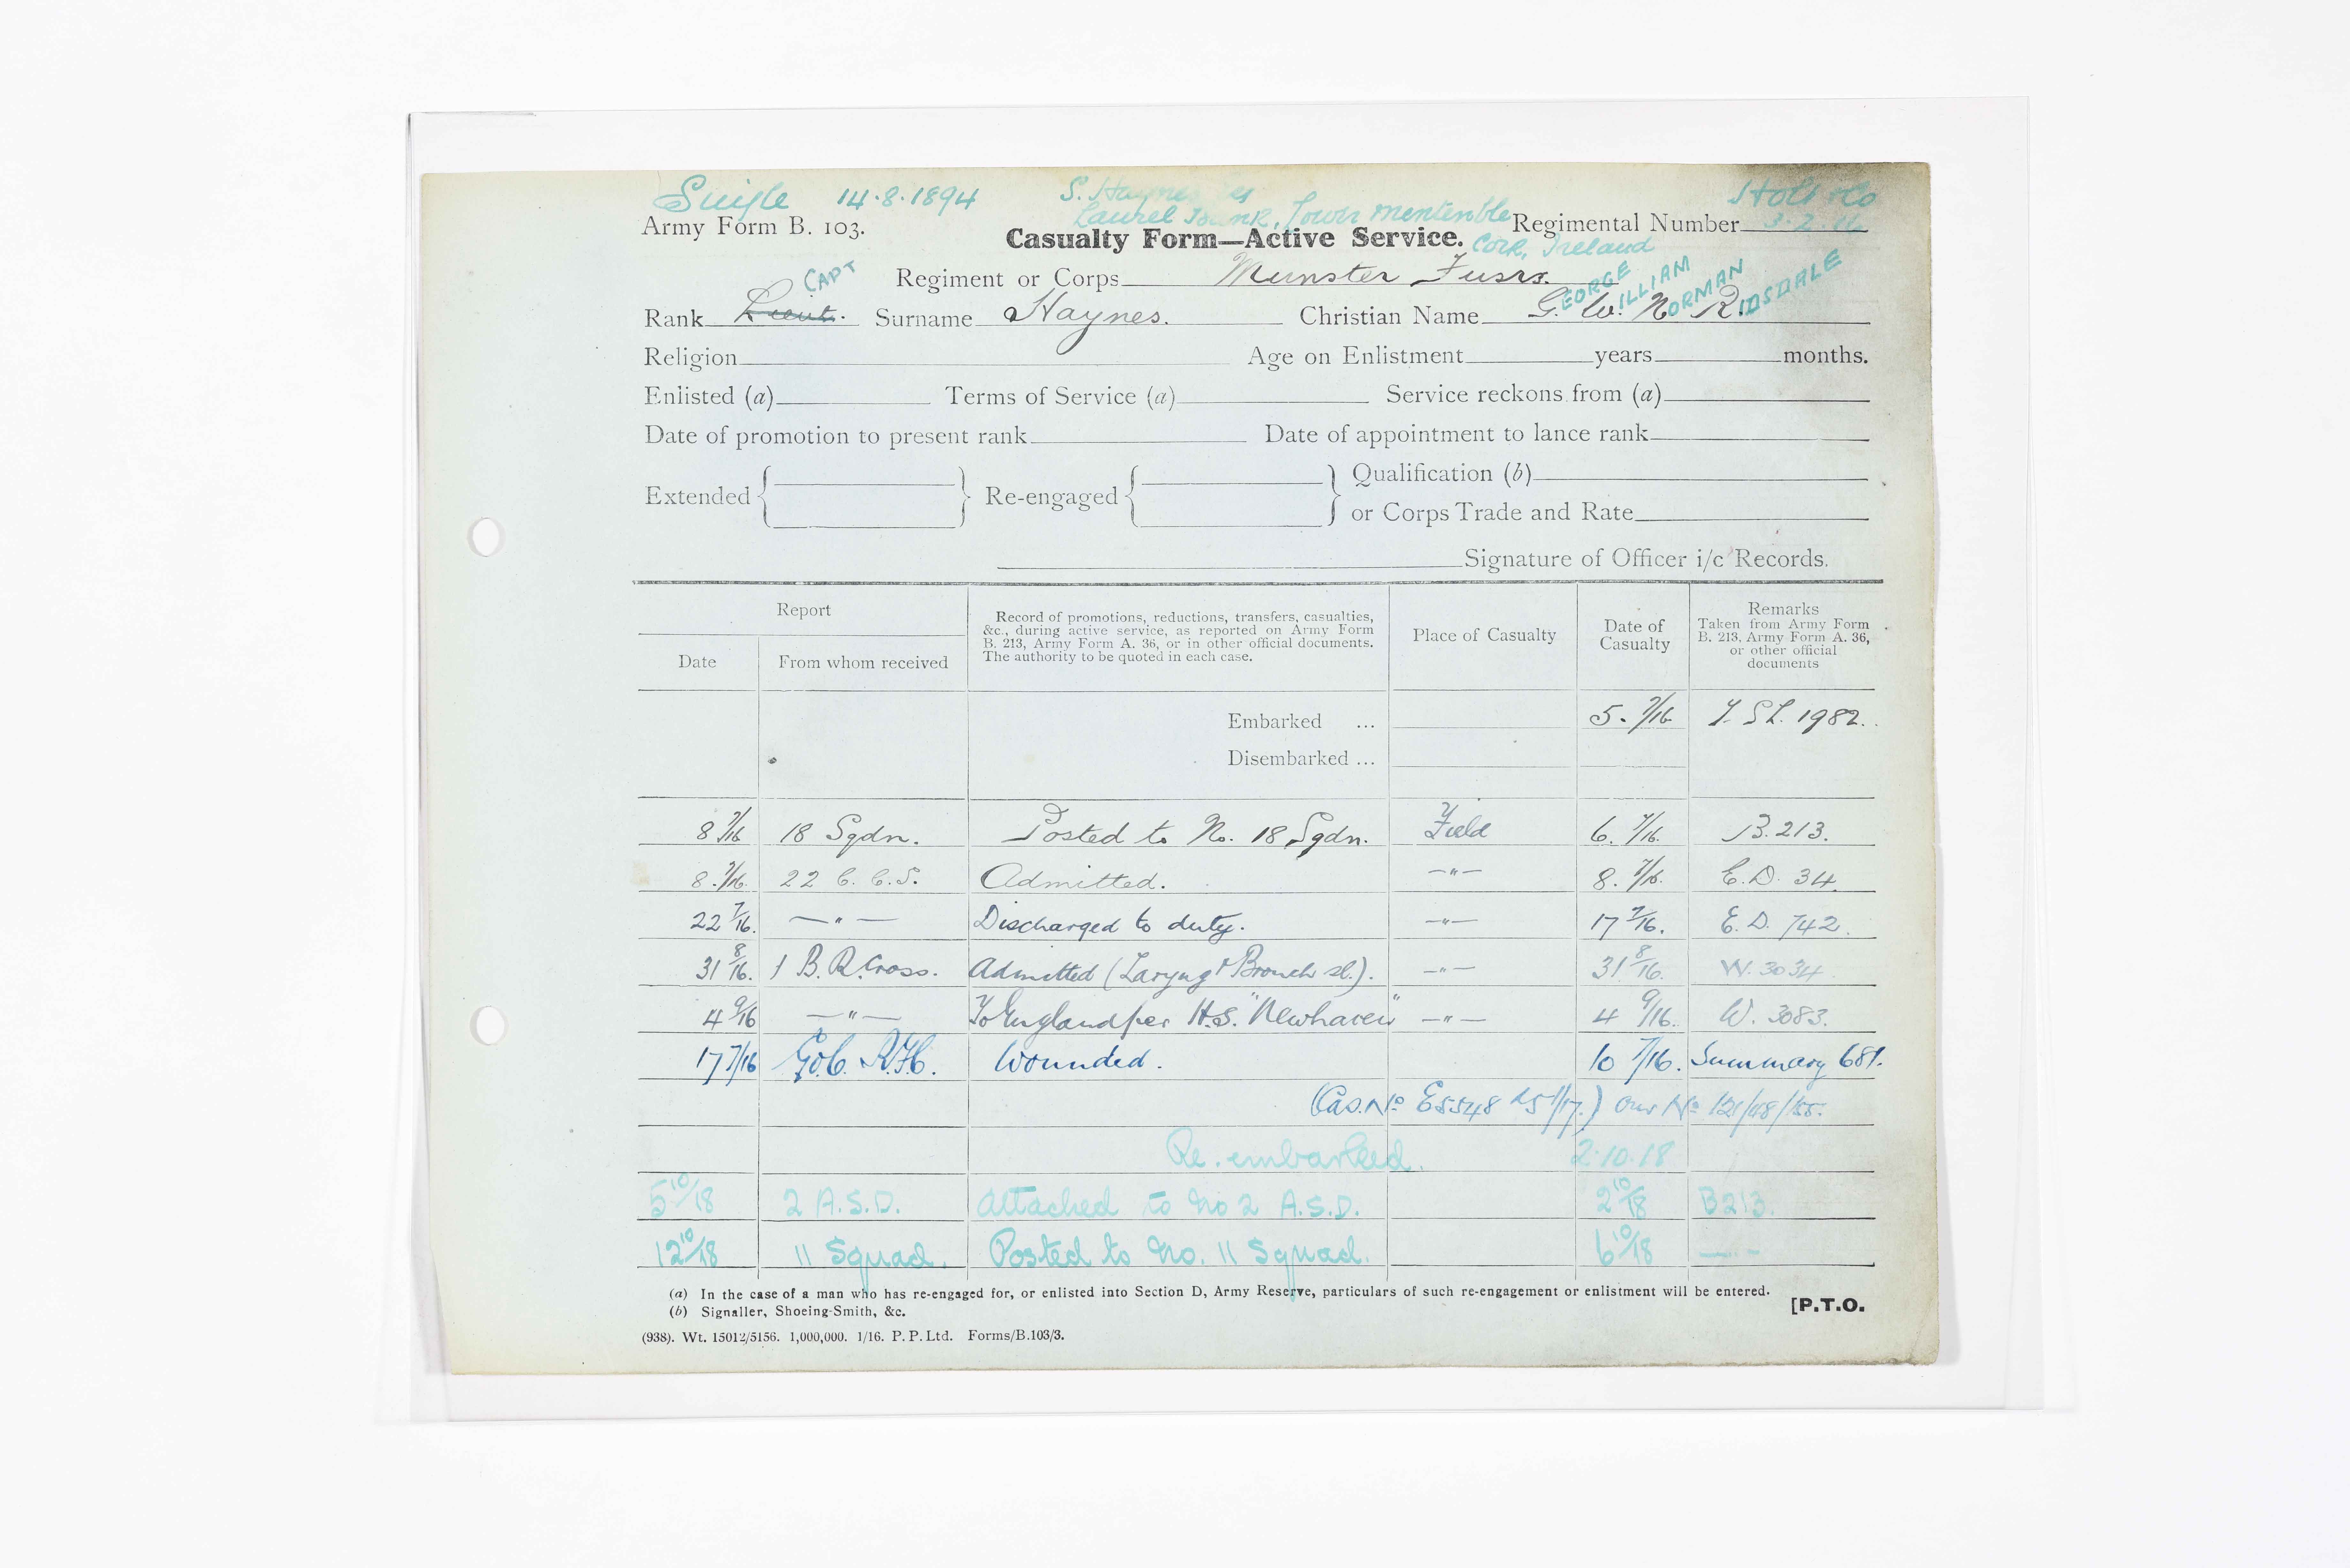 Single 14.8.1894 S. Haynes Holt & Co
Laurel Bank, Lower
Army Form B. 103. Regimental Number 3.2.16
Casualty Form—Active Service. Cork, Ireland
Regiment or Corps Munster Fusrs.
Rank Lieut. CAPT Surname Haynes. Christian Name GEORGE WILLIAM NORMAN RIDSDALE
Religion Age on Enlistment years months.
Enlisted (a) Terms of Service (a) Service reckons from (a)
Date of promotion to present rank Date of appointment to lance rank
Extended Re-engaged Qualification (b)
or Corps Trade and Rate
Signature of Officer i/c Records.
Report
Date From whom received
Record of promotions, reductions, transfers, casualties,
&c., during active service, as reported on Army Form
B. 213, Army Form A. 36, or in other official documents.
The authority to be quoted in each case.
Place of Casualty
Date of
Casualty
Remarks
Taken from Army Form
B. 213, Army Form A. 36,
or other official
documents
Embarked ... 5. 7/16 1982.
Disembarked ...
8 7/16 18 Sqdn. Posted to No. 18 Sqdn. Field 6. 7/16. B.213.
8. 7/16. 22 C.C.S. Admitted. —"— 8. 7/16. E.D. 34.
22 7/16. —"— Discharged to duty. —"— 17 7/16. E.D. 742.
31 8/16. 1 B.R.Cross. Admitted (Laryng & Bronch sl.). —"— 31 8/16. W.3034.
4 9/16 —"— To England per H.S. "Newhaven" —"— 4 9/16. W. 3083.
17 7/16 G.O.C. R.F.C. Wounded. 10 7/16. Summary 681.
(Cas. No E5548 25 1/17.) Our No 121/
Re-embarked. 2.10.18
5 10/18 2 A.S.D. Attached to No 2 A.S.D. 2 10/18 B213.
12 10/18 11 Squad. Posted to No. 11 Squad. 6 10/18 — " —
(a) In the case of a man who has re-engaged for, or enlisted into Section D, Army Reserve, particulars of such re-engagement or enlistment will be entered.
(b) Signaller, Shoeing-Smith, &c.
[P.T.O.
(938). Wt. 15012/5156. 1,000,000. 1/16. P. P. Ltd. Forms/B.103/3.